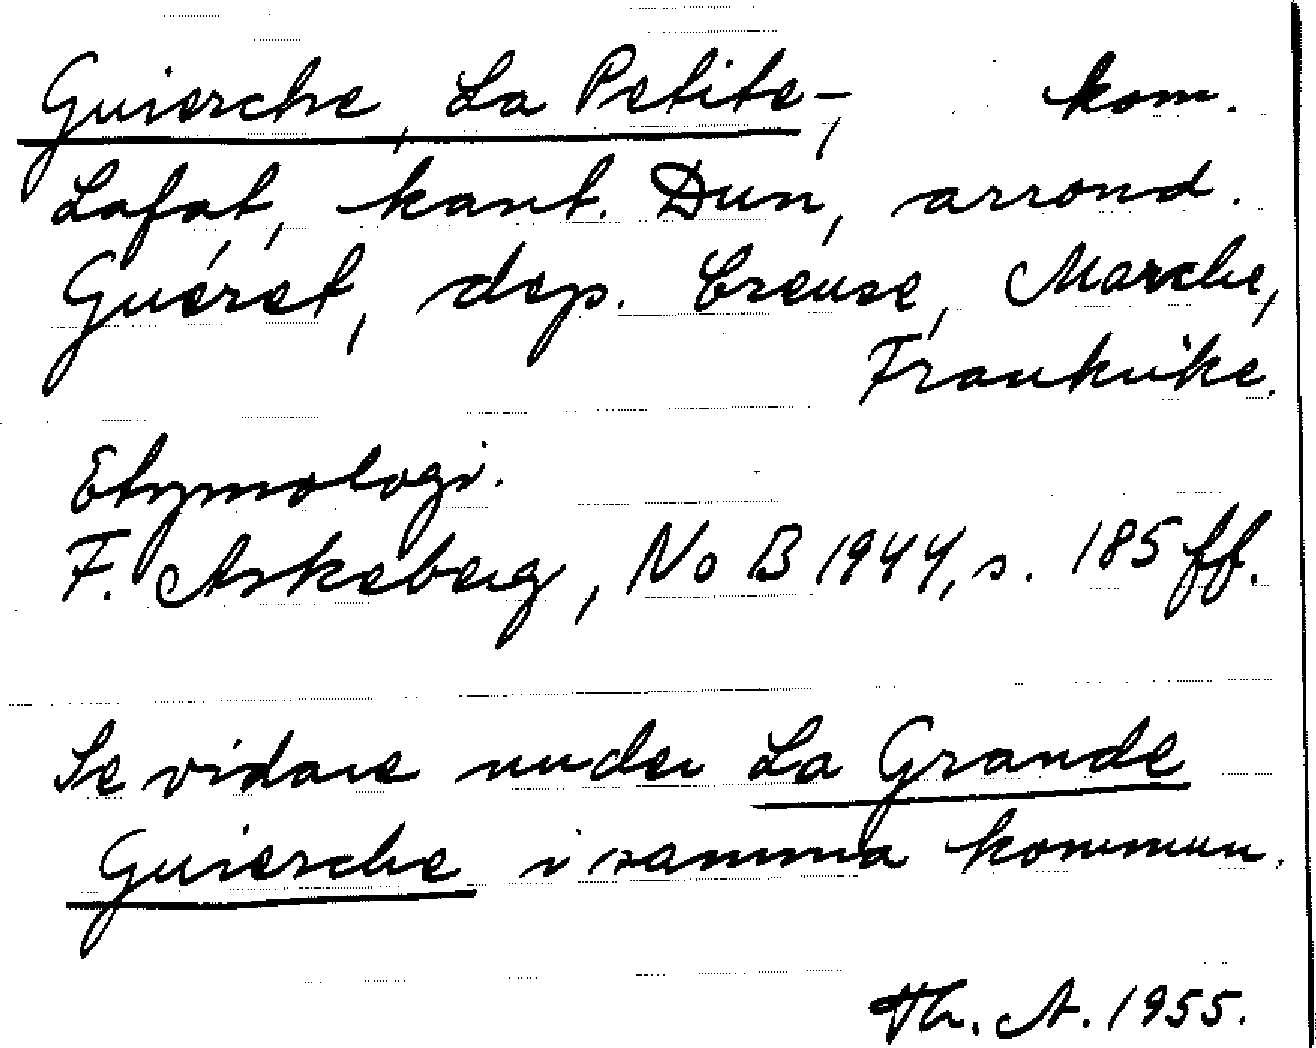 Guierche, La Petite-, kom.
Lafat, kant. Dun, arrond.
Guéret, dep. Creuse, Marche,
Frankrike.
Etymologi.
F. Askeberg, NoB 1944, s. 185 ff.
Se vidare under La Grande
Guierche i samma kommun.
Th. A. 1955.